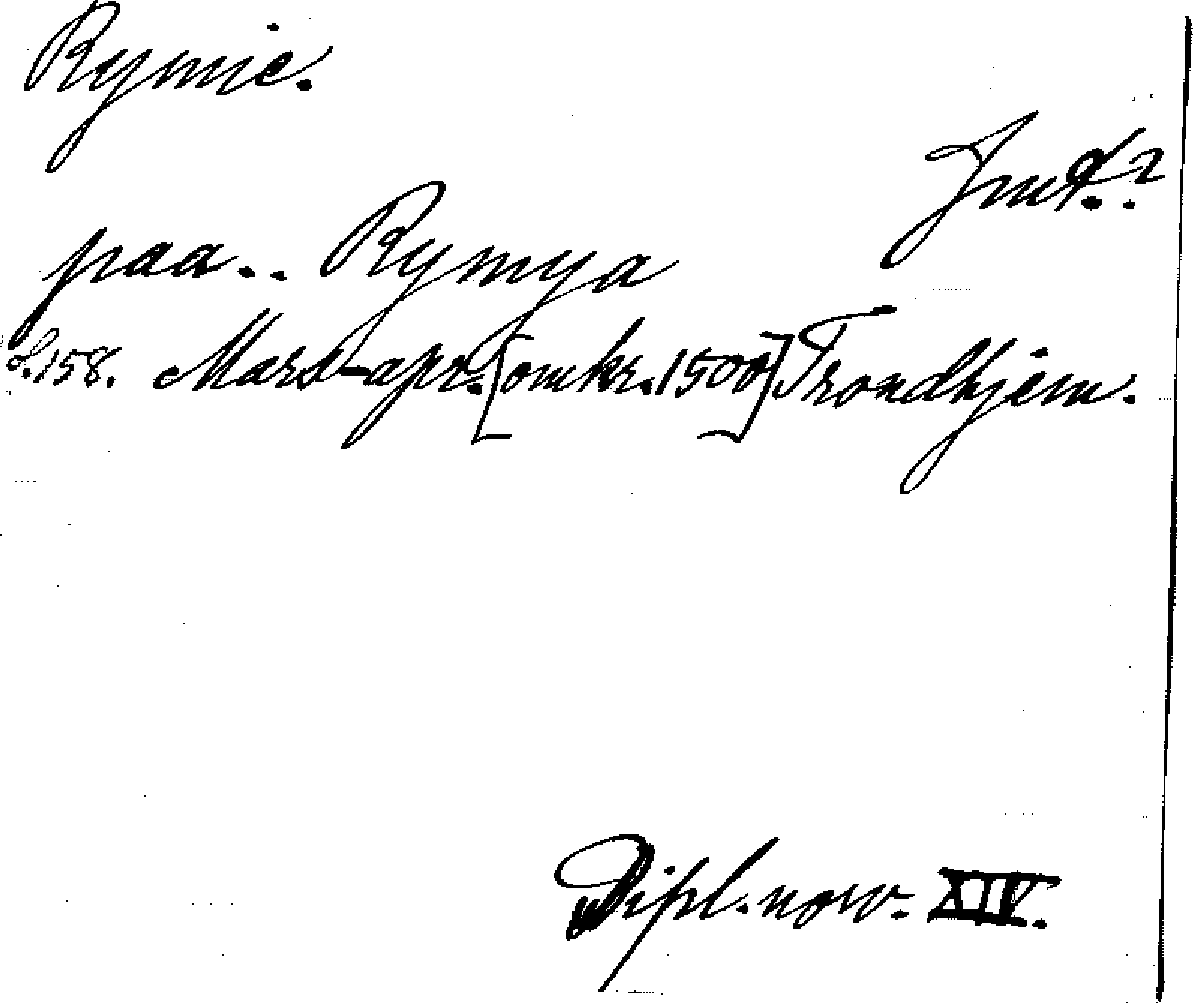 Rymie.
Jmt.?
paa.. Rymya
s. 158. Mars-apr. [omkr. 1500] Trondhjem.
Dipl. norv. XIV.